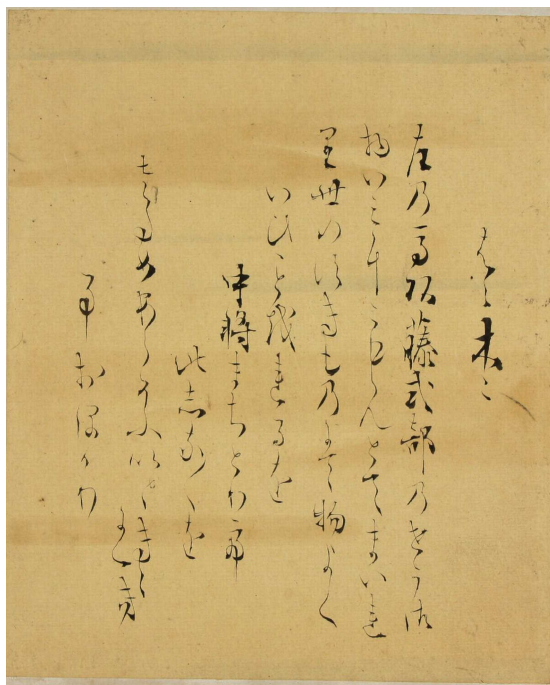 はゝ木ゝ
左の馬頭藤式部のせう御
物いみにこもらんとてまいれ
り世のすきものにて物よく
いひとをれるを
中将まちとりて
此しな〳〵を
さためあらそふいときゝ
にくき
事おほかり